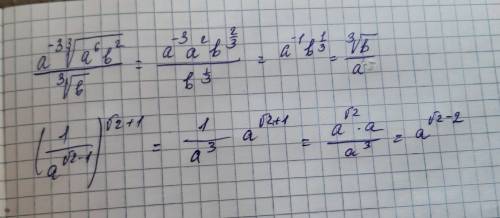 \frac{a^{-3}\sqrt[3]{a^{6}b^{2}}}{\sqrt[3]{b}} = \frac{a^{-3}a^{2}b^{\frac{2}{3}}}{b^{\frac{1}{3}}} = a^{-1}b^{\frac{1}{3}} = \frac{\sqrt[3]{b}}{a}
\left(\frac{1}{a^{\sqrt{2}-1}}\right)^{\sqrt{2}+1} = \frac{1}{a^{3}} a^{\sqrt{2}+1} = \frac{a^{\sqrt{2}} \cdot a}{a^{3}} = a^{\sqrt{2}-2}